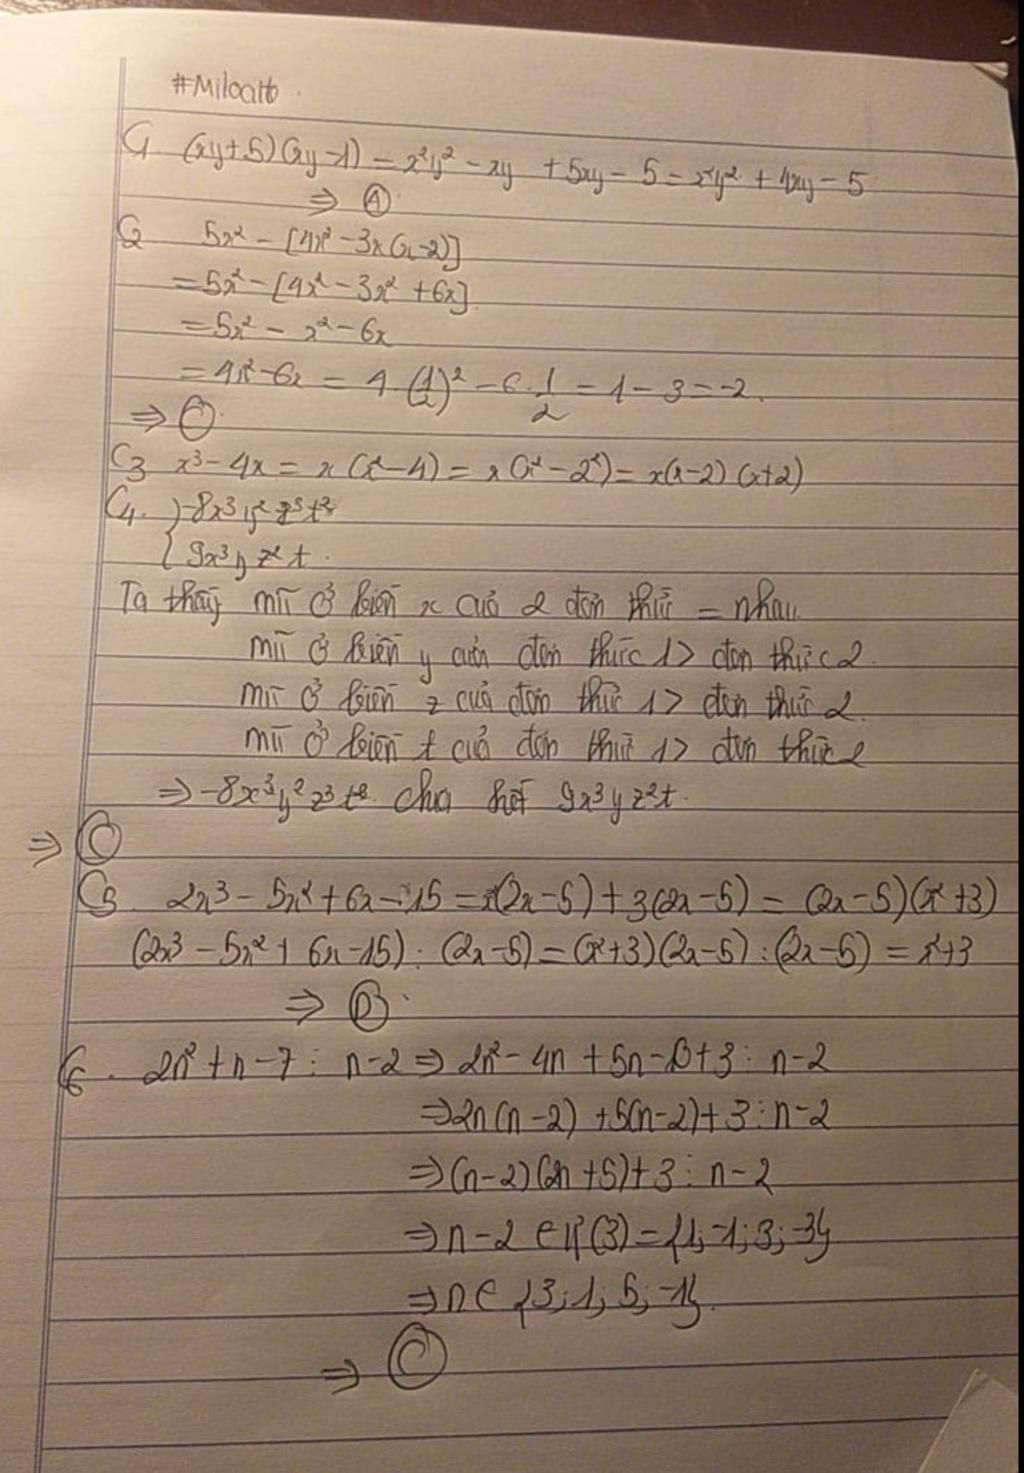 #Miloatto.
C1 (xy+5)(xy-1) = x²y² - xy + 5xy - 5 = x²y² + 4xy - 5
⇒ Ⓐ
C2 5x² - [4x² - 3x(x-2)]
= 5x² - [4x² - 3x² + 6x]
= 5x² - x² - 6x
= 4x² - 6x = 4.(1/2)² - 6.1/2 = 1 - 3 = -2.
⇒ Ⓒ
C3 x³ - 4x = x(x² - 4) = x(x² - 2²) = x(x-2)(x+2)
C4. { -8x³y²z³t²
9x³yz²t.
Ta thấy mũ ở biến x của 2 đơn thức = nhau.
mũ ở biến y của đơn thức 1 > đơn thức 2.
mũ ở biến z của đơn thức 1 > đơn thức 2.
mũ ở biến t của đơn thức 1 > đơn thức 2
⇒ -8x³y²z³t² chia hết 9x³yz²t.
⇒ Ⓒ
C5. 2x³ - 5x² + 6x - 15 = x²(2x-5) + 3(2x-5) = (2x-5)(x²+3)
(2x³ - 5x² + 6x - 15) : (2x-5) = (x²+3)(2x-5) : (2x-5) = x²+3
⇒ Ⓓ.
C6. 2n² + n - 7 ⋮ n-2 ⇒ 2n² - 4n + 5n - 10 + 3 ⋮ n-2
⇒ 2n(n-2) + 5(n-2) + 3 ⋮ n-2
⇒ (n-2)(2n+5) + 3 ⋮ n-2
⇒ n-2 ∈ Ư(3) = {1; -1; 3; -3}
⇒ n ∈ {3; 1; 5; -1}.
⇒ Ⓒ